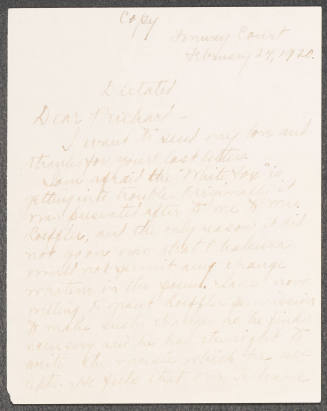 Copy
Fenway Court
February 24, 1920.
Dictated
Dear Prichard -
I want to send my love and
thanks for your last letter.
I am afraid the "White Fox" is
getting into trouble. Originally it
was presented after to me & Mr.
Loeffler, and the only reason it did
not go on was that Okakura
would not permit any change
written in the poem. I am now
willing to grant Loeffler permission
to make such changes as he finds
necessary and he has the right to
write the music which the
He feels that